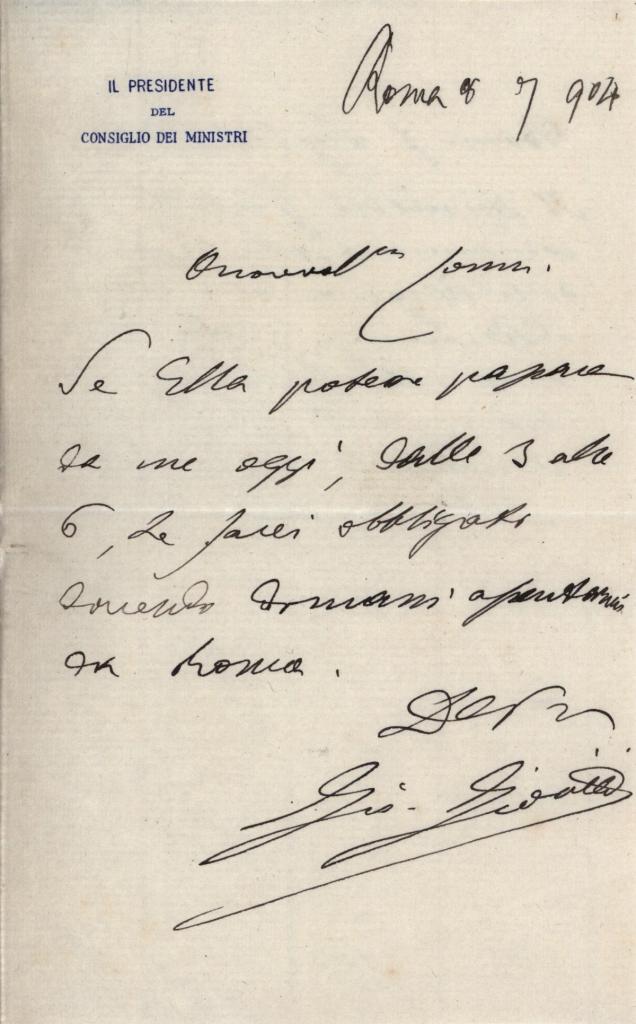 IL PRESIDENTE
DEL
CONSIGLIO DEI MINISTRI
Roma 8 7 904
Onorevol<sup>mo</sup> Comm.
Se Ella potesse passare
da me oggi, dalle 3 alle
6, Le sarei obbligato
dovendo domani assentarmi
da Roma.
Gio. Giolitti